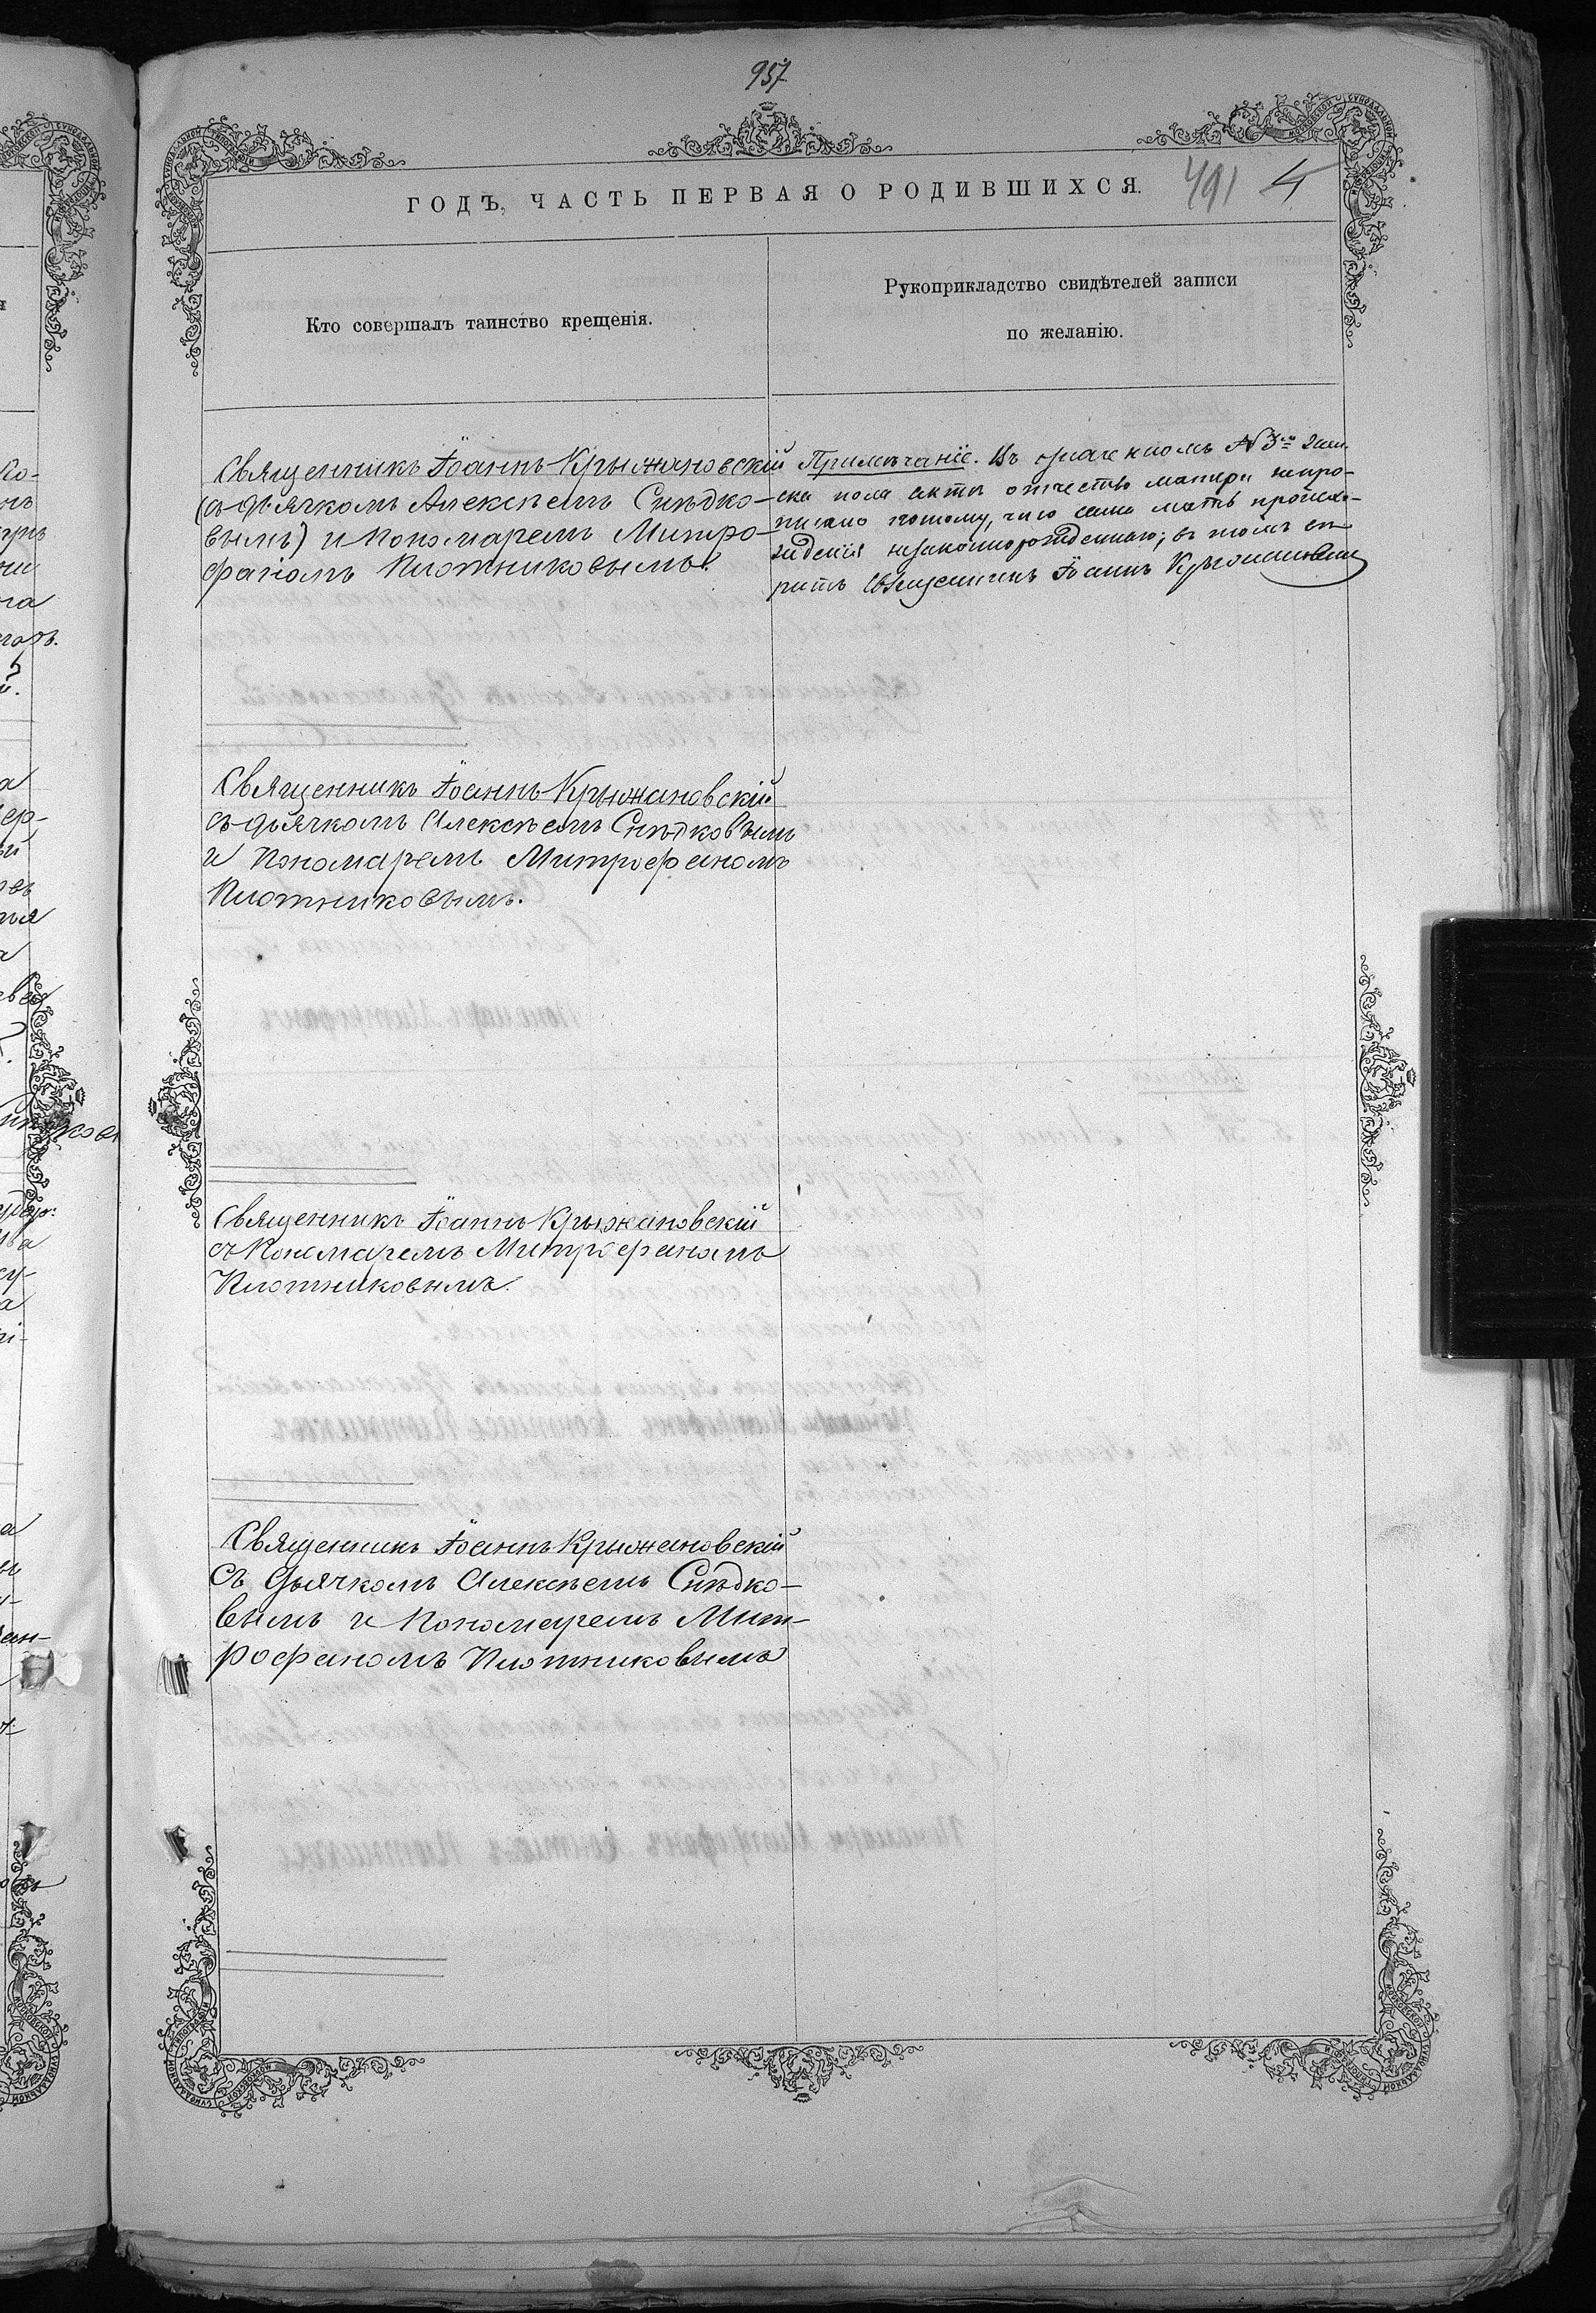 957
ГОДЪ, ЧАСТЬ ПЕРВАЯ О РОДИВШИХСЯ.
491 4
Кто совершалъ таинство крещенія.
Рукоприкладство свидѣтелей записи
по желанію.
Священникъ Іоаннъ Крыжановскій
(съ дьячкомъ Алексѣемъ Снѣдко-
вымъ) и пономаремъ Митро-
фаномъ Плотниковымъ.
Примѣчаніе. Въ № 3мъ жен-
ска пола акта отчество матери непро-
писано потому, что сама мать происхо-
жденія незаконнорожденнаго; въ томъ
Священникъ Іоаннъ Крыжановскій
Священникъ Іоаннъ Крыжановскій
съ дьячкомъ Алексѣемъ Снѣдковымъ
и пономаремъ Митрофаномъ
Плотниковымъ.
Священникъ Іоаннъ Крыжановскій
съ пономаремъ Митрофаномъ
Плотниковымъ.
Священникъ Іоаннъ Крыжановскій
Съ дьячкомъ Алексѣемъ Снѣдко-
вымъ и пономаремъ Мит-
рофаномъ Плотниковымъ